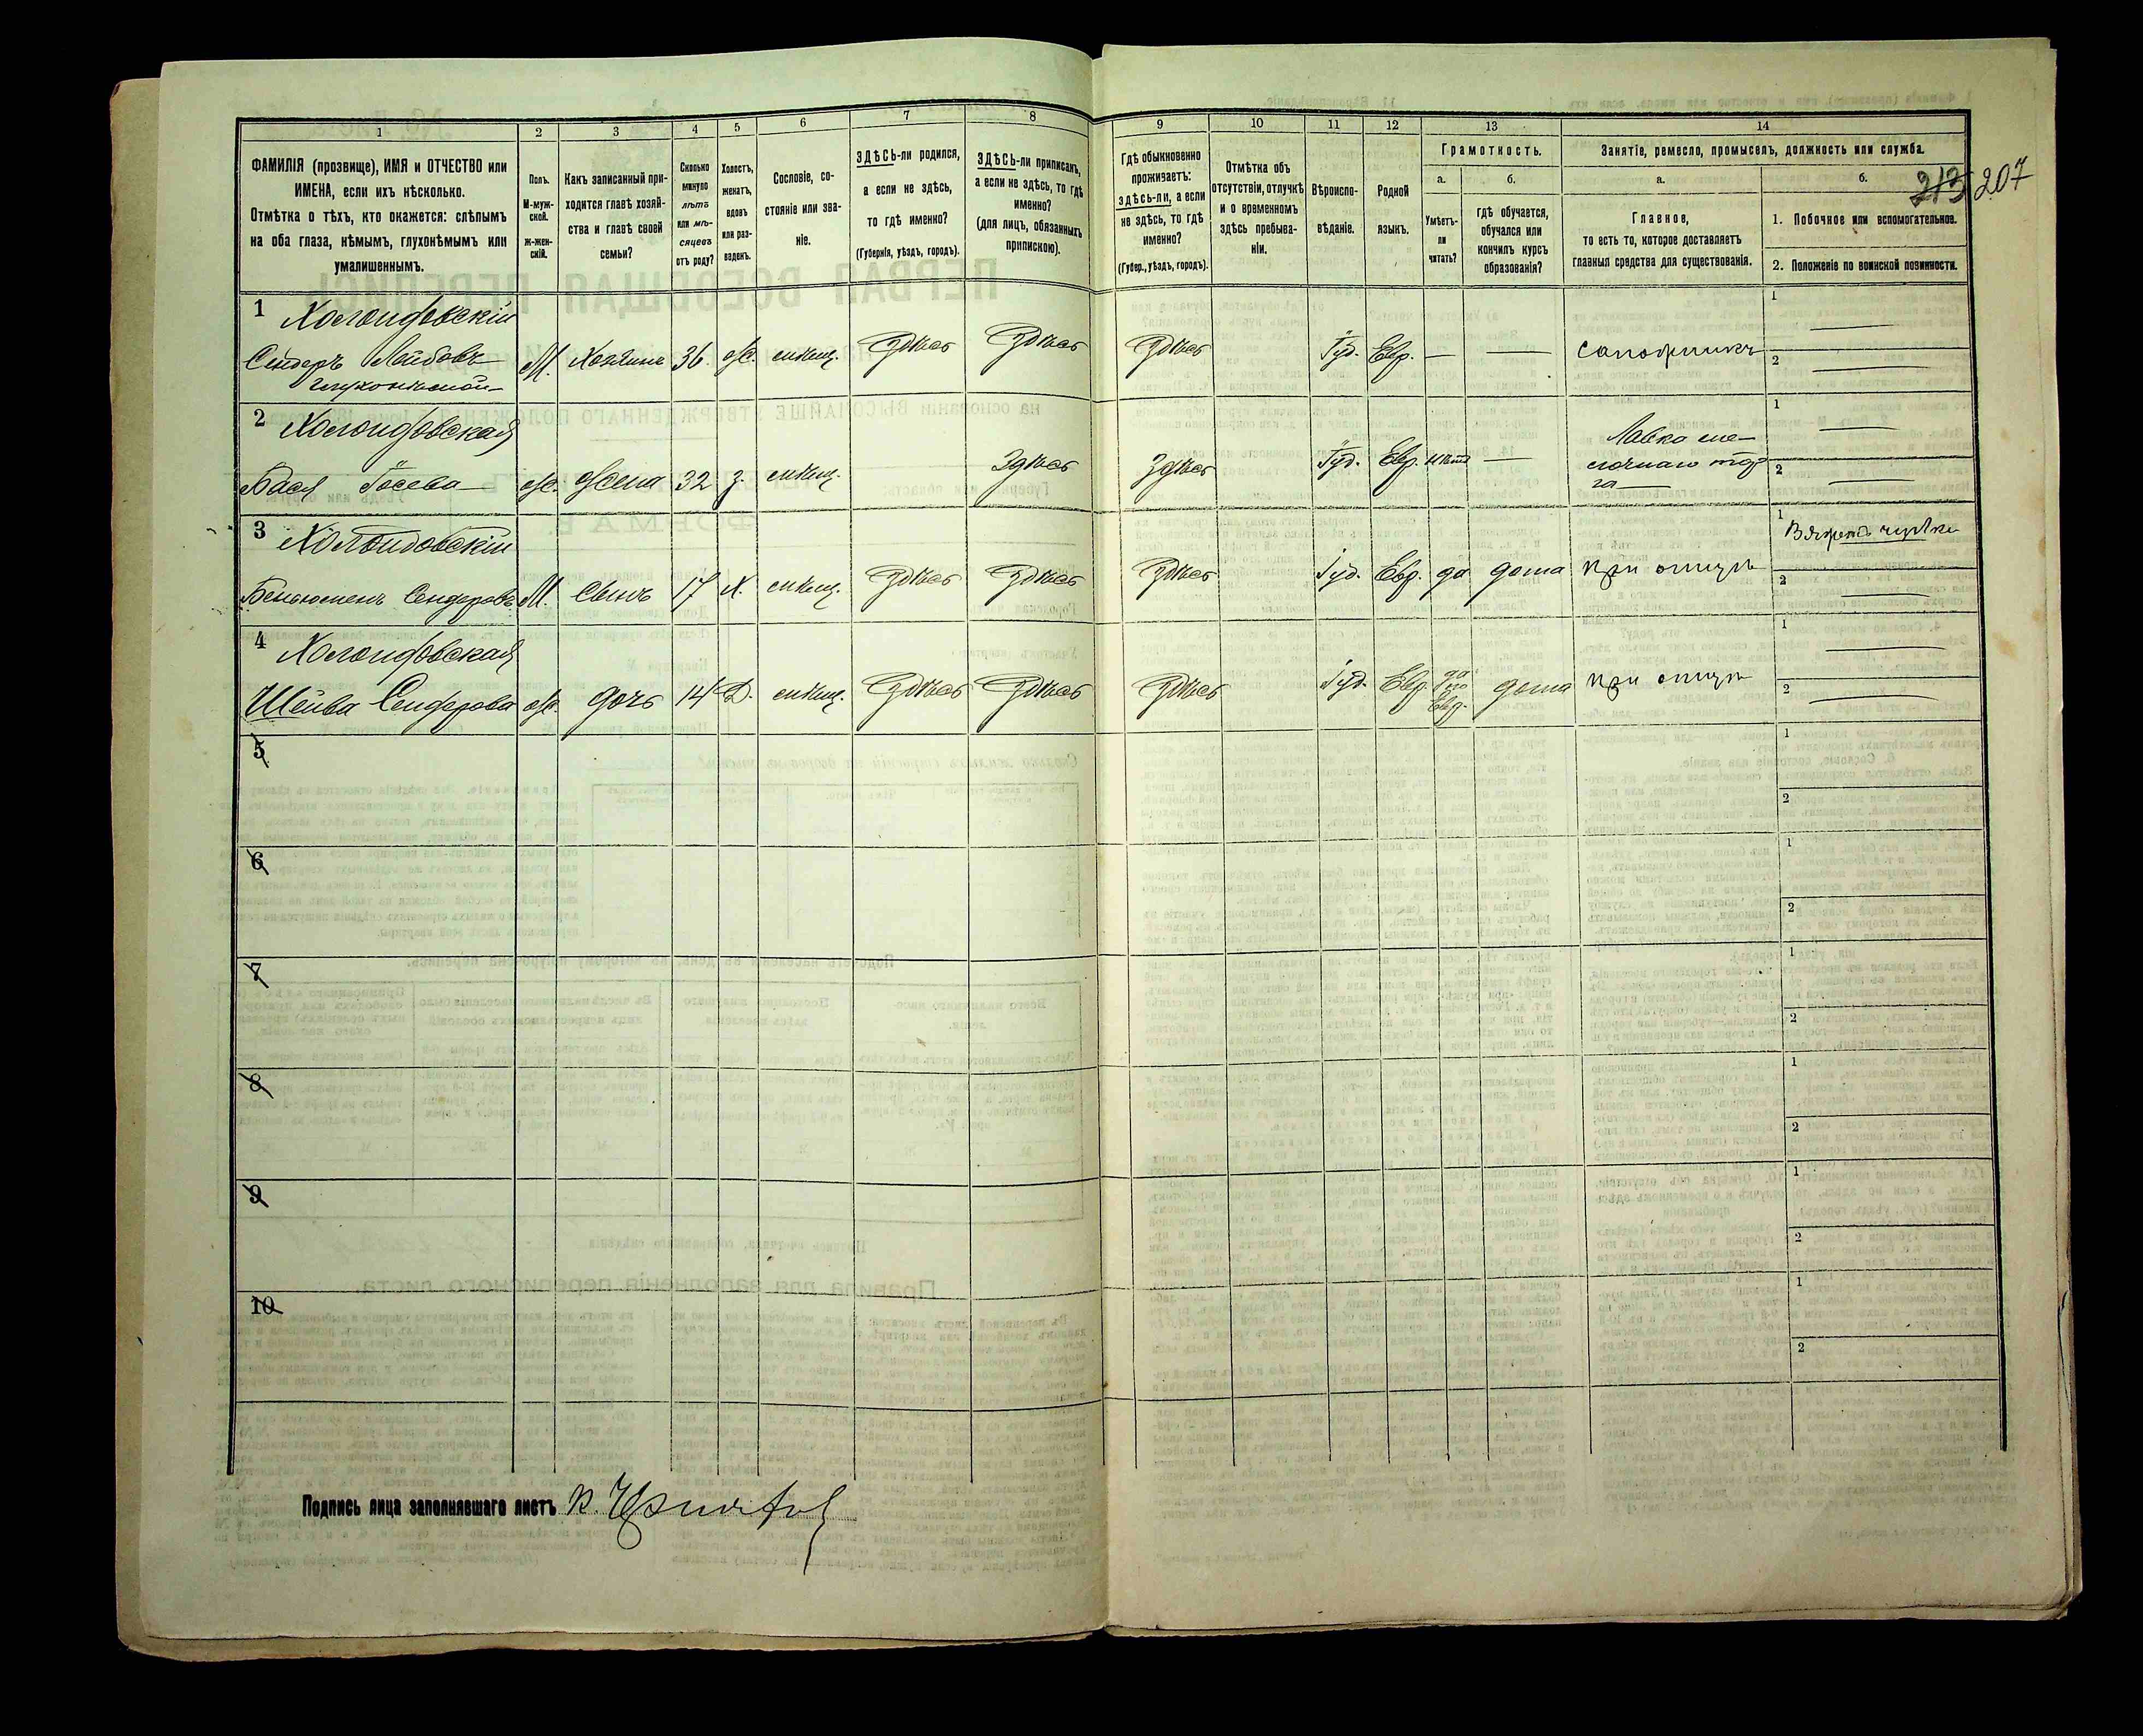 1 2 3 4 5 6 7 8 9 10 11 12 13 14
ФАМИЛІЯ (прозвище), ИМЯ и ОТЧЕСТВО или
ИМЕНА, если ихъ нѣсколько.
Отмѣтка о тѣхъ, кто окажется: слѣпымъ
на оба глаза, нѣмымъ, глухонѣмымъ или
умалишеннымъ.
Полъ.
М-муж-
ской.
ж-жен-
скій.
Какъ записанный при-
ходится главѣ хозяй-
ства и главѣ своей
семьи?
Сколько
минуло
лѣтъ
или мѣ-
сяцевъ
отъ роду?
Холостъ,
женатъ,
вдовъ
или раз-
веденъ.
Сословіе, со-
стояніе или зва-
ніе.
ЗДѢСЬ-ли родился,
а если не здѣсь,
то гдѣ именно?
(Губернія, уѣздъ, городъ).
ЗДѢСЬ-ли приписанъ,
а если не здѣсь, то гдѣ
именно?
(для лицъ, обязанныхъ
припискою).
Гдѣ обыкновенно
проживаетъ:
здѣсь-ли, а если
не здѣсь, то гдѣ
именно?
(Губер., уѣздъ, городъ).
Отмѣтка объ
отсутствіи, отлучкѣ
и о временномъ
здѣсь пребыва-
ніи.
Вѣроиспо-
вѣданіе.
Родной
языкъ.
Грамотность.
а.
Умѣетъ-
ли
читать?
б.
гдѣ обучается,
обучался или
кончилъ курсъ
образованія?
Занятіе, ремесло, промыселъ, должность или служба.
а.
Главное,
то есть то, которое доставляетъ
главныя средства для существованія.
б.
213 207
1. Побочное или вспомогательное.
2. Положеніе по воинской повинности.
1 Холоидовскій
Сендеръ Лейбовъ М. Хозяинъ 36. ж. мѣщ. Здѣсь Здѣсь Здѣсь Іуд. Евр. — — сапожникъ
глухонѣмой
1
2
2 Холоидовская
Бася Іосева ж. Жена 32 з. мѣщ. Здѣсь Здѣсь Іуд. Евр. нѣтъ —
Лавка ме-
лочнаго тор-
га
1
2
3 Холоидовскій
Беньюменъ Сендеровъ М. Сынъ 17 х. мѣщ. Здѣсь Здѣсь Здѣсь Іуд. Евр. да дома при отцѣ
1
2
4 Холоидовская
Шейва Сендерова ж. дочь 14 Д. мѣщ. Здѣсь Здѣсь Здѣсь Іуд. Евр. да
по
Евр. дома при отцѣ
1
2
5
1
2
6
1
2
7
1
2
8
1
2
9
1
2
10
1
2
Подпись лица заполнявшаго листъ